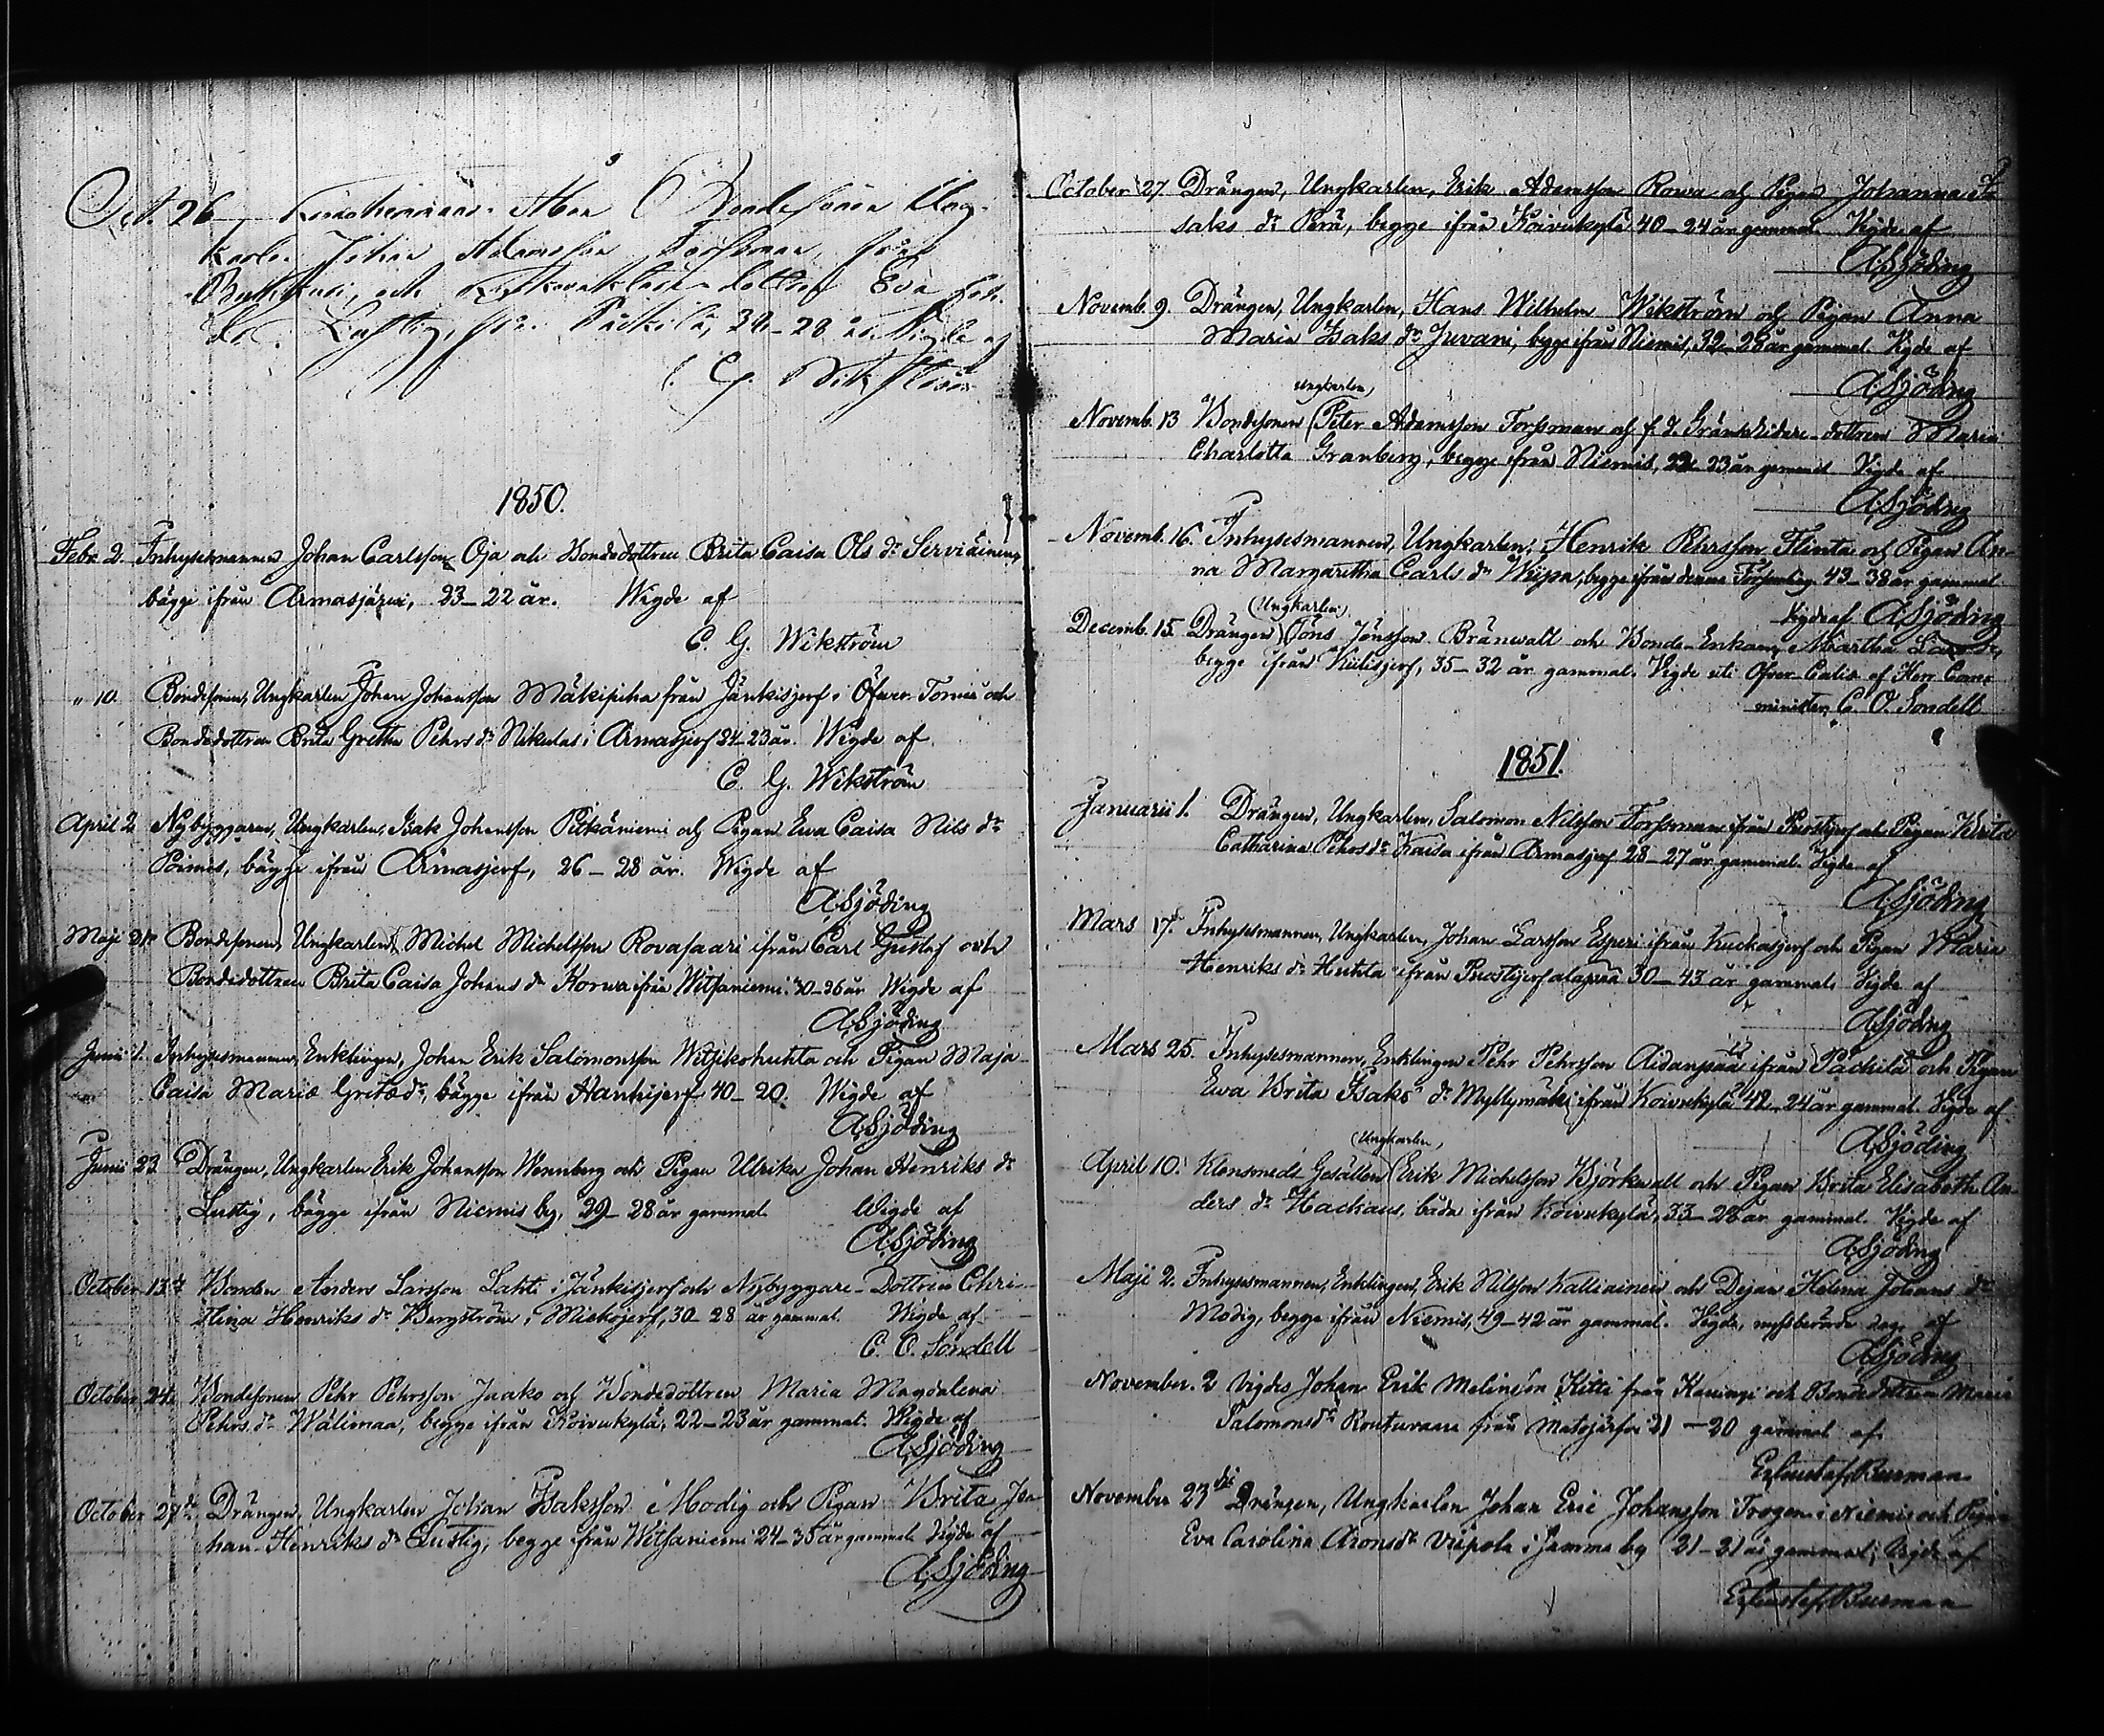 Oct. 26 Bondesonen Ung-
karl. Johan Adamsson Forssman, från
och dottren Eva Joh.
dr. Lustig, från Päckilä, 34–28 år. Vigde af
C. G. Wikström
1850.
Febr. 2. Inhysesmannen Johan Carlsson Oja och Bondedottren Brita Caisa Ols dr Serviäinen,
bägge ifrån Armasjärvi, 23–22 år. Wigde af
C. G. Wikström
" 10. Bondesonen, Ungkarlen Johan Johansson Mäkipiha från Jänkisjerf i Öfver Torneå och
Bondedottren Brita Gretha Pehrs dr Nikulas i Armasjerf 24–23 år. Wigde af
C. G. Wikström
April 2 Nybyggaren, Ungkarlen, Isak Johansson Pitkäniemi och Pigan Eva Caisa Nils dr
Poimes, bägge ifrån Armasjerf, 26–28 år. Wigde af
A. Sjöding
Maji Bondesonen, Ungkarlen, Michel Michelsson Rovasaari ifrån Carl Gustaf och
Bondedottren Brita Caisa Johans dr Korwa ifrån Witsaniemi 30–26 år Wigde af
A. Sjöding
Junii 1. Inhysesmannen, Enklingen, Johan Erik Salomonsson Witsikohuhta och Pigan Maja
Caisa Mariæ Gretæ dr, bägge ifrån Hanhijerf 40–20. Wigde af
A. Sjöding
Junii 23 Drängen, Ungkarlen Erik Johansson Wennberg och Pigan Ulrika Johan Henriks dr
Lustig, bägge ifrån Niemis by, 29–28 år gammal. Wigde af
A. Sjöding
October 13. Bonden Anders Larsson Lahti i Jänkisjerf och Nybyggare-Dottren Chri-
stina Henriks dr Bergström i Miekojerf, 30–28 år gammal. Wigde af
C. O. Sondell
October 24. Bondesonen Pehr Pehrsson Jaako och Bondedottren Maria Magdalena
Pehrs dr Wälimaa, begge ifrån Koivukylä, 22–23 år gammal. Wigde af
A. Sjöding
October 27. Drängen, Ungkarlen Johan Isaksson Modig och Pigan Brita Jo-
han-Henriks dr Lustig, begge ifrån Witsaniemi 24–35 år gammal Vigde af
A. Sjöding
October 27 Drängen, Ungkarlen, Erik Adamsson Rowa och Pigan Johanna I-
saks dr Perä, begge ifrån Koivukylä 40–24 år gammal Vigde af
A. Sjöding
Novemb. 9. Drängen, Ungkarlen, Hans Wilhelm Wikström och Pigan Anna
Maria Isaks dr Juvani, begge ifrån Niemis, 32–28 år gammal. Vigde af
A. Sjöding
Ungkarlen,
Novemb. 13 Bondesonen Peter Adamsson Forssman och f. d. Gränsridare-dottren Maria
Charlotta Granberg, begge ifrån Niemis, 22–23 år gammal Vigde af
A. Sjöding
Novemb. 16. Inhysesmannen, Ungkarlen, Henrik Pehrsson Flinta och Pigan An-
na Margaretha Carls dr Wiipa, begge ifrån denna Församling 43–38 år gammal
Vigde af A. Sjöding
(Ungkarlen)
Decemb. 15 Drängen Jöns Jönsson Bränwall och Bonde-Enkan, Martha Lars dr,
begge ifrån Kiilisjerf, 35–32 år gammal. Vigde uti Öfver-Calix af Herr Com-
minister C. O. Sondell
1851.
Januarii 1. Drängen, Ungkarlen, Salomon Nilsson Forssman ifrån Puostijerf och Pigan Brita
Catharina Pehrs dr Kaisa ifrån Armasjerf 28–27 år gammal. Vigde af
A. Sjöding
Mars 17. Inhysesmannen, Ungkarlen, Johan Larsson Esperi ifrån Kuckasjerf och Pigan Maria
Henriks dr Huhta ifrån Puostijerf alapää 30–43 år gammal. Vigde af
A. Sjöding
Mars 25. Inhysesmannen, Enklingen Pehr Pehrsson Aidanpää ifrån Päckilä och Pigan
Ewa Brita Isaks dr Myllymäki ifrån Koivukylä 42–24 år gammal. Vigde af
A. Sjöding
(Ungkarlen,
April 10. Klensmeds Gesällen Erik Michelsson Björkwall och Pigan Brita Elisabeth An-
ders dr Hackaus, båda ifrån Koivukylä, 33–28 år gammal. Vigde af
A. Sjöding
Maji 2. Inhysesmannen, Enklingen, Erik Nilsson Kalliainen och Dejan Helena Johans dr
Modig, begge ifrån Niemis, 49–42 år gammal. Vigde, nyssberörde dag, af
A. Sjöding
November. 2 Vigdes Johan Erik Kitti från Kauinge och Bondedottren Maria
Salomonsdr Kontuvaara från Matojärfvi 21–20 gammal af
E. Gustaf Burman
November 23die Drängen, Ungkarlen Johan Eric Johansson Trogen i Niemis och Pigan
Eva Carolina Aronsdr Viipola i samma by 21–21 år gammal; Vigde af
E. Gustaf Burman